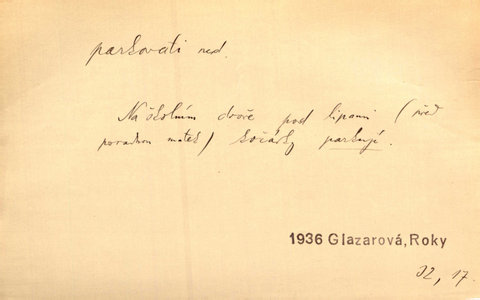 parkovati ned.
Na školním dvoře pod lipami (před
poradnou matek) kočárky parkují.
1936 Glazarová, Roky
32, 17.